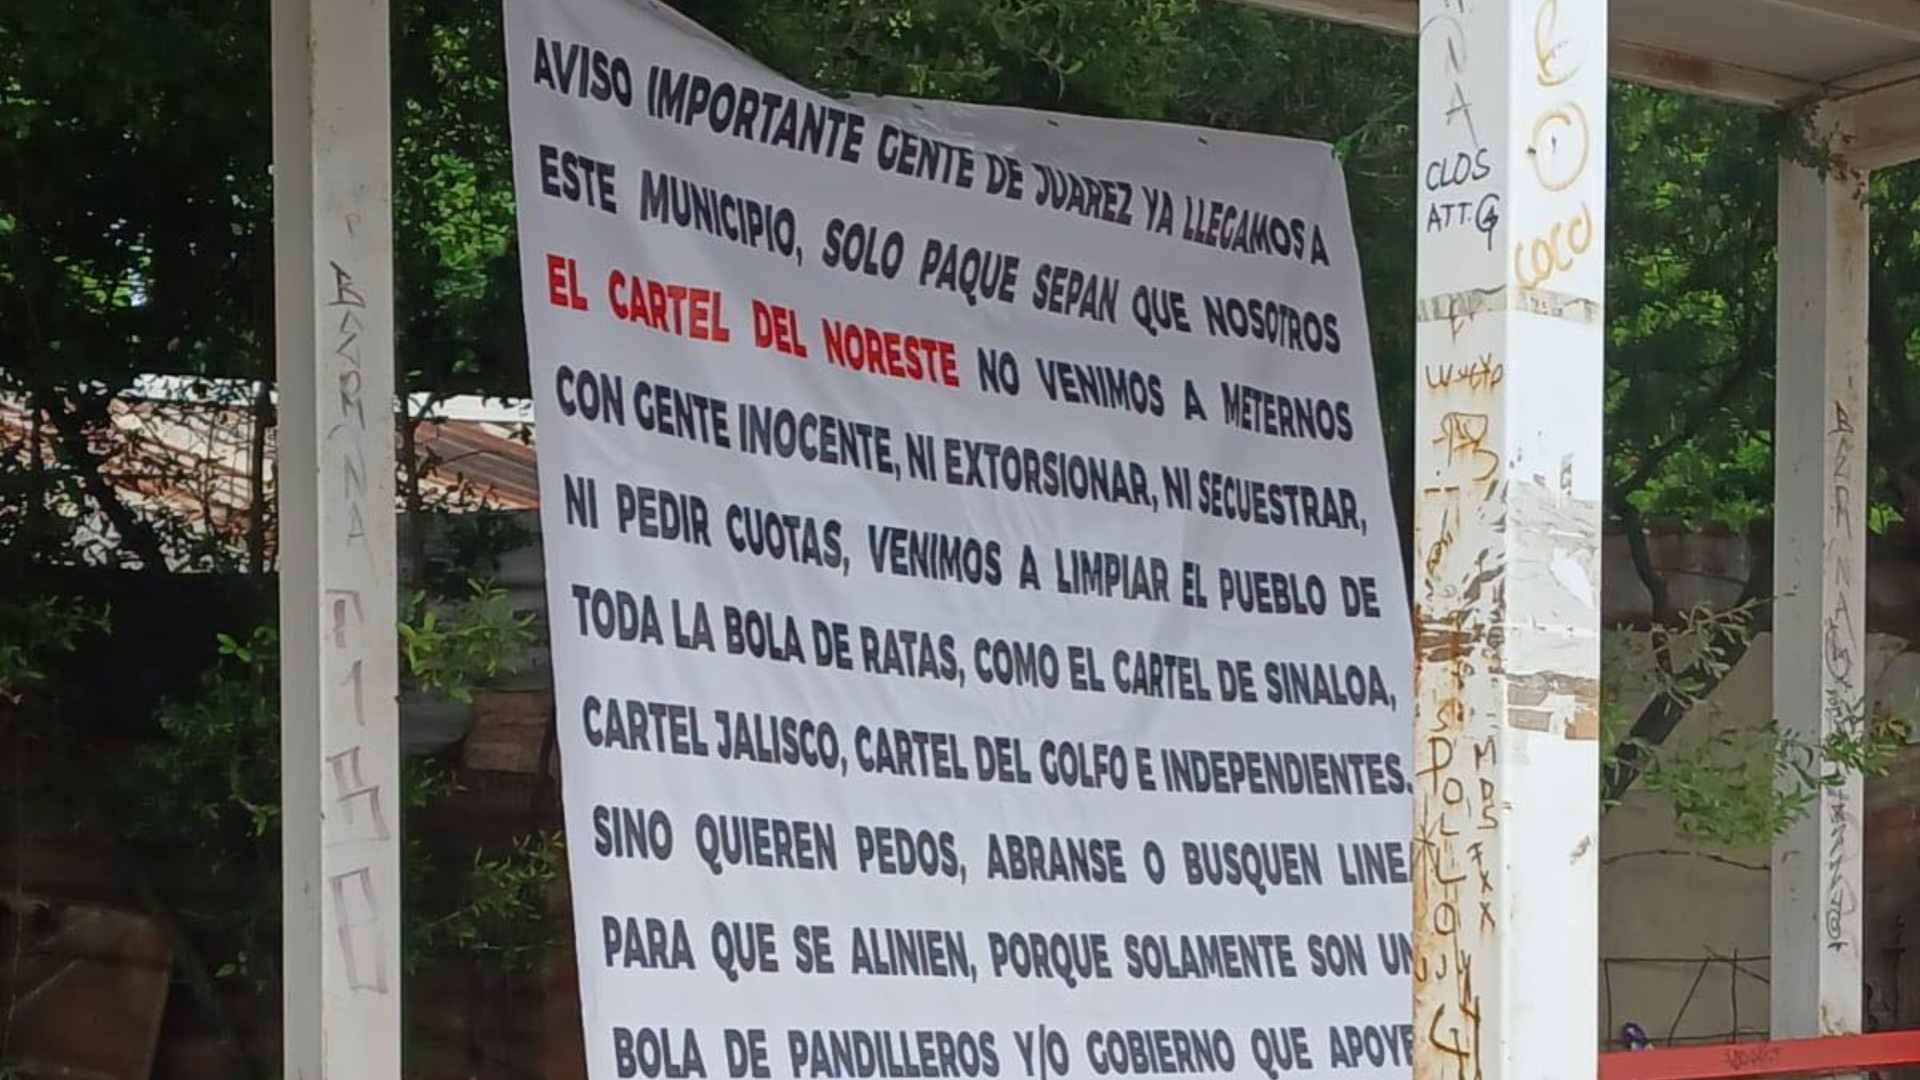 AVISO IMPORTANTE GENTE DE JUAREZ YA LLEGAMOS A
ESTE MUNICIPIO, SOLO PAQUE SEPAN QUE NOSOTROS
EL CARTEL DEL NORESTE NO VENIMOS A METERNOS
CON GENTE INOCENTE, NI EXTORSIONAR, NI SECUESTRAR,
NI PEDIR CUOTAS, VENIMOS A LIMPIAR EL PUEBLO DE
TODA LA BOLA DE RATAS, COMO EL CARTEL DE SINALOA,
CARTEL JALISCO, CARTEL DEL GOLFO E INDEPENDIENTES.
SINO QUIEREN PEDOS, ABRANSE O BUSQUEN LINE
PARA QUE SE ALINIEN, PORQUE SOLAMENTE SON UN
BOLA DE PANDILLEROS Y/O GOBIERNO QUE APOYE
CLOS
ATT. G
COCO